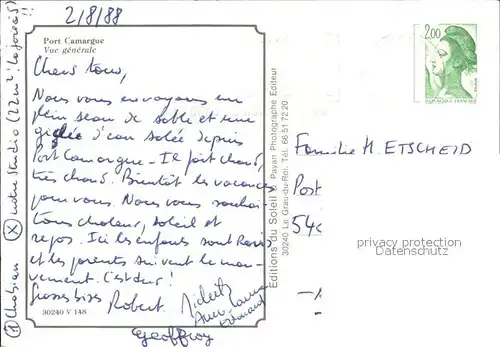 2/8/88
Port Camargue
Vue générale
Chers tous,
Nous vous envoyons un
plein seau de sable et une
giclée d'eau salée depuis
Port Camargue - Il fait chaud,
très chaud. Bientôt les vacances
pour vous. Nous vous souhai-
tons chaleur, soleil et
repos. Ici les enfants sont Ravis
et les parents suivent le mou-
vement. C'est dur!
Grosses bises Robert.
Geoffroy
30240 V 148
notre studio (22m²
Editions du Soleil © Payan Photographe Editeur
30240 Le Grau-du-Roi. Tél. 66 51 72 20
2,00
REPUBLIQUE FRANÇAISE
Familie H. ETSCHEID
Post
54
privacy protection
Datenschutz